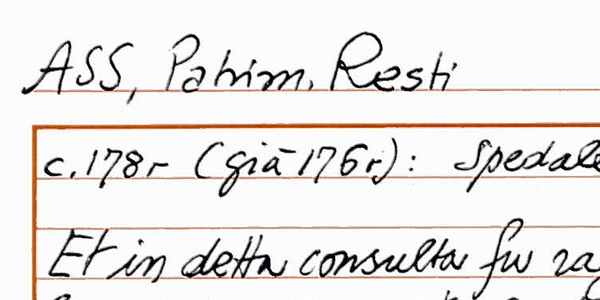 ASS, Patrim. Resti
c. 178r (già 176r): Spedale
Et in detta consulta fu ra